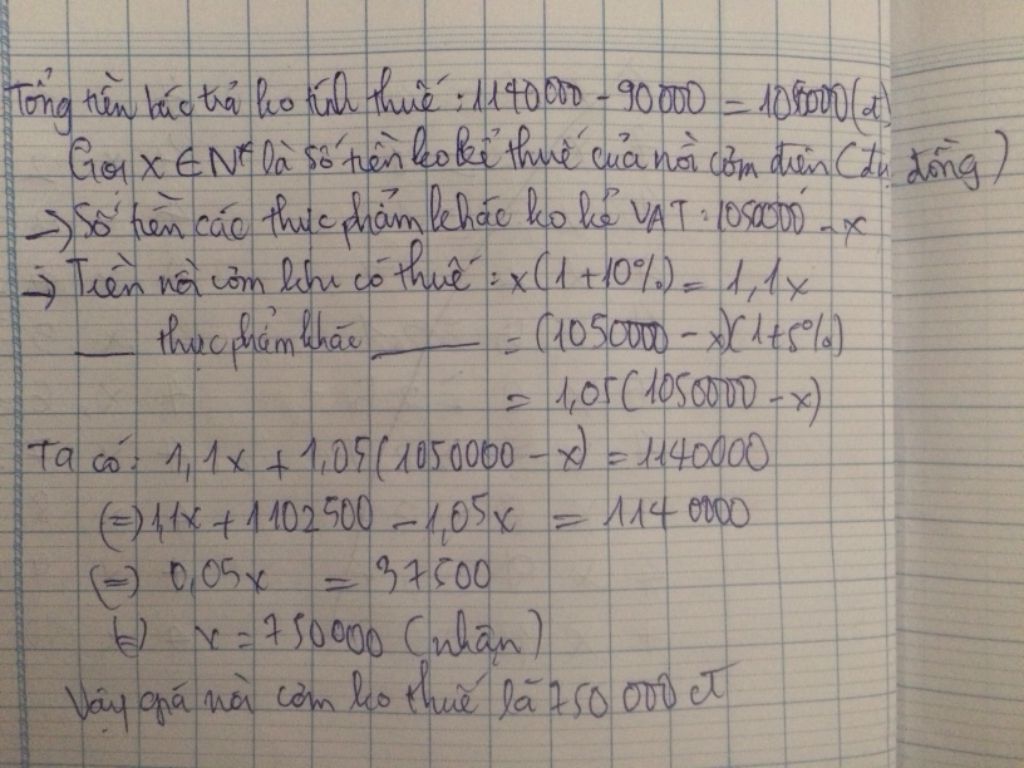 Tổng tiền bác trả ko tính thuế : 1140000 - 90000 = 105000(đ)
Gọi x ∈ N* là số tiền ko kể thuế của nồi cơm điện (đv: đồng)
→ Số tiền các thực phẩm khác ko kể VAT : 1050000 - x
→ Tiền nồi cơm khi có thuế : x(1 + 10%) = 1,1x
— thực phẩm khác —— = (1050000 - x)(1+5%)
= 1,05(1050000 - x)
Ta có : 1,1x + 1,05(1050000 - x) = 1140000
(=) 1,1x + 1102500 - 1,05x = 1140000
(=) 0,05x = 37500
(=) x = 750000 (nhận)
Vậy giá nồi cơm ko thuế là 750 000 đ